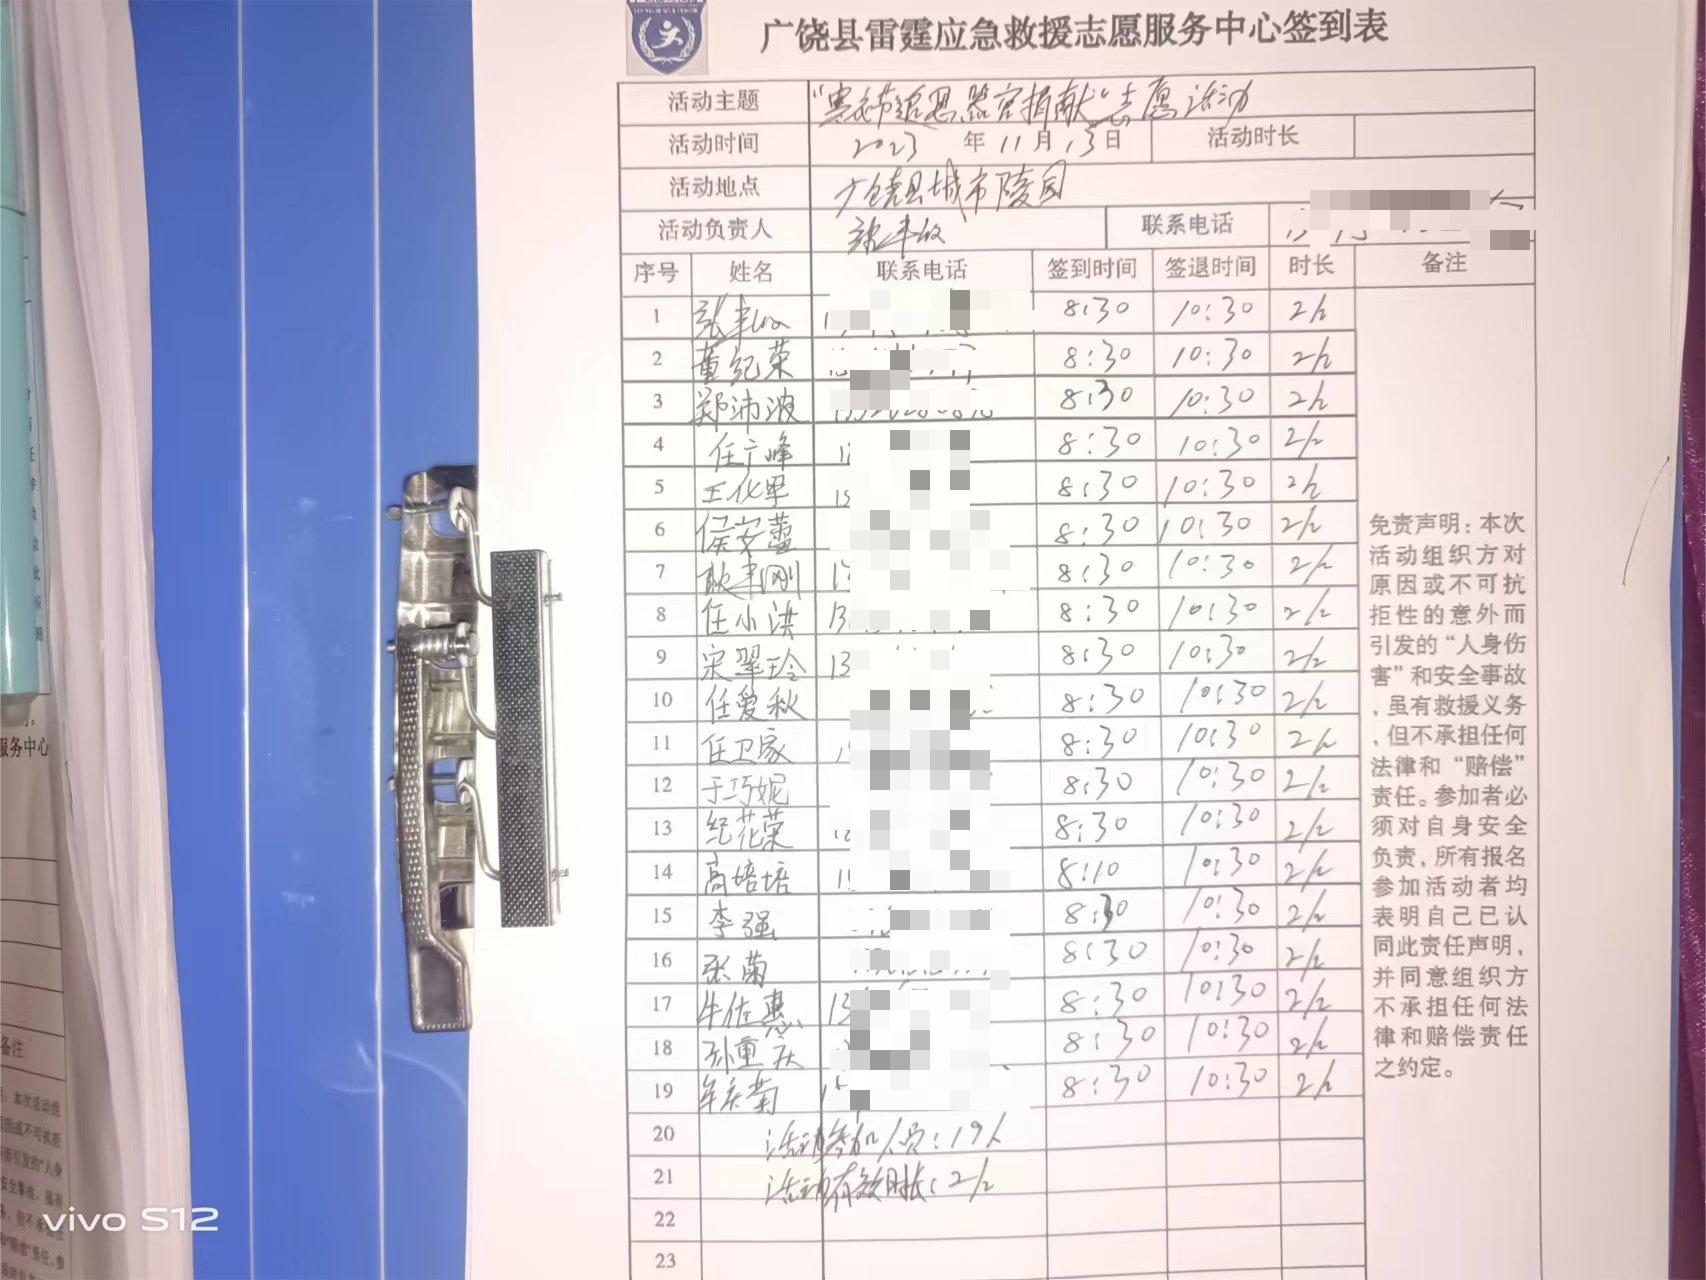 广饶县雷霆应急救援志愿服务中心签到表
活动主题 "寒衣节追思器官捐献"志愿活动
活动时间 2023 年 11 月 13 日 活动时长
活动地点 广饶县城市陵园
活动负责人 联系电话
序号 姓名 联系电话 签到时间 签退时间 时长 备注
1 8:30 10:30 2h
2 董纪荣 8:30 10:30 2h
3 郑沛波 8:30 10:30 2h
4 任广峰 8:30 10:30 2h
5 王化军 8:30 10:30 2h
6 侯安蕾 8:30 10:30 2h
7 耿丰刚 8:30 10:30 2h
8 任小洪 13 8:30 10:30 2h
9 宋翠玲 13 8:30 10:30 2h
10 任爱秋 8:30 10:30 2h
11 任卫家 8:30 10:30 2h
12 于巧妮 8:30 10:30 2h
13 纪花荣 8:30 10:30 2h
14 高培培 8:10 10:30 2h
15 李强 8:30 10:30 2h
16 张菊 8:30 10:30 2h
17 牛佐惠 13 8:30 10:30 2h
18 孙重庆 8:30 10:30 2h
19 牟庆菊 8:30 10:30 2h
20 活动参加人员:19人
21 活动有效时长:2h
22
23
免责声明:本次
活动组织方对
原因或不可抗
拒性的意外而
引发的“人身伤
害”和安全事故
,虽有救援义务
,但不承担任何
法律和“赔偿”
责任。参加者必
须对自身安全
负责,所有报名
参加活动者均
表明自己已认
同此责任声明,
并同意组织方
不承担任何法
律和赔偿责任
之约定。
服务中心
备注
vivo S12